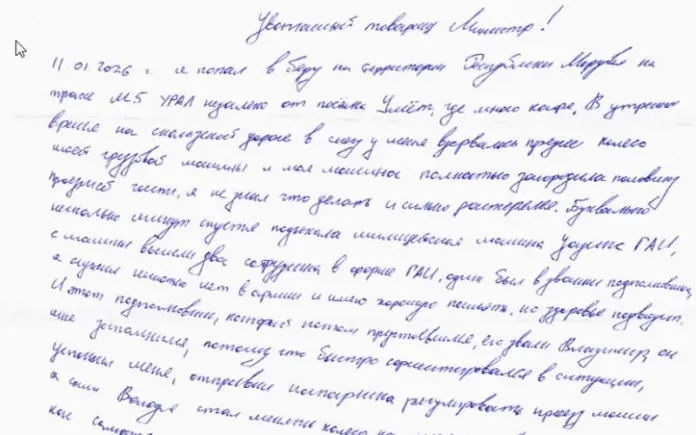 Уважаемый товарищ Министр!
11.01.2026 г. я попал в беду на территории Республики Мордовия на
трассе М5 УРАЛ недалеко от посёлка Умёт, где много кафе. В утреннее
время на скользкой дороге в снегу у меня взорвалось переднее колесо
моей грузовой машины и моя машина полностью загородила половину
проезжей части, я не знал что делать и сильно растерялся. Буквально
несколько минут спустя подъехала милицейская машина ГАИ,
с машины вышли два сотрудника в форме ГАИ, один был в звании подполковника,
я служил много лет в армии и имею хорошую память, но здоровье подводит.
И этот подполковник, который потом представился, его звали Владимир, он
мне запомнился, потому что быстро сориентировался в ситуации,
успокоил меня, отправил напарника регулировать проезд машин
а сам Володя стал менять колесо на
как